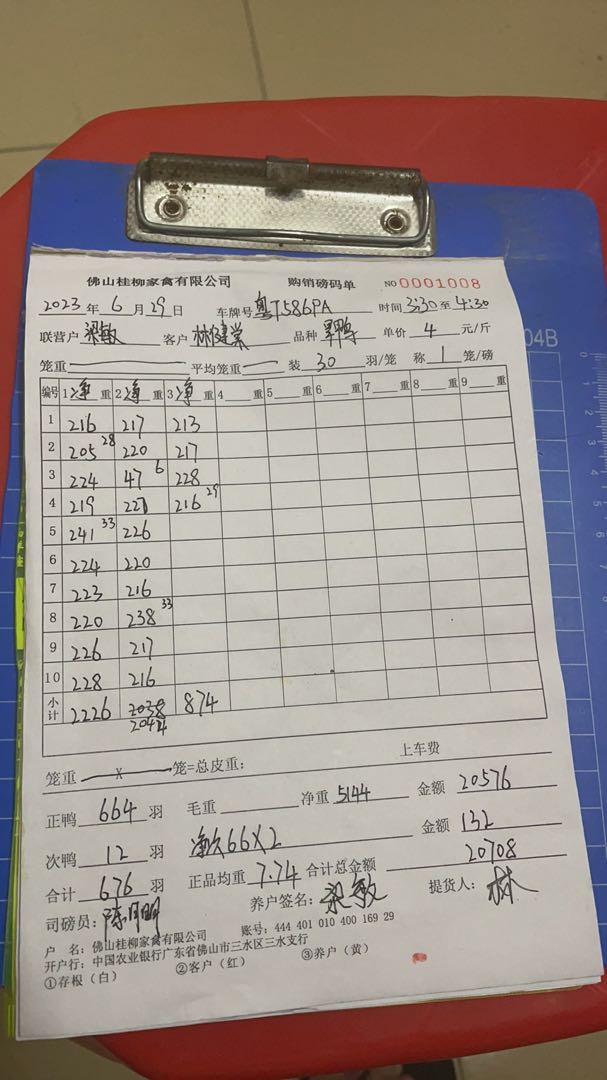 佛山桂柳家禽有限公司 购销磅码单 NO 0001008
2023 年 6 月 29 日 车牌号 粤T586PA 时间 3:30 至 4:30
联营户 梁敏 客户 林健棠 品种 单价 4 元/斤
笼重 平均笼重 装 30 羽/笼 称 1 笼/磅
编号 1 净 重 2 净 重 3 净 重 4 重 5 重 6 重 7 重 8 重 9 重
1 216 217 213
2 205 28 220 217
3 224 47 6 228
4 219 227 216 29
5 241 33 226
6 224 220
7 223 216
8 220 238 33
9 226 217
10 228 216
小计 2226 2038 874
2044
笼重 X 笼=总皮重: 上车费
正鸭 664 羽 毛重 净重 5144 金额 20576
次鸭 12 羽 66X2 金额 132
合计 676 羽 正品均重 7.74 合计总金额 20708
司磅员: 陈月明 养户签名: 梁敏 提货人: 林
户 名: 佛山桂柳家禽有限公司 账号: 444 401 010 400 169 29
开户行: 中国农业银行广东省佛山市三水区三水支行
①存根（白） ②客户（红） ③养户（黄）
04B